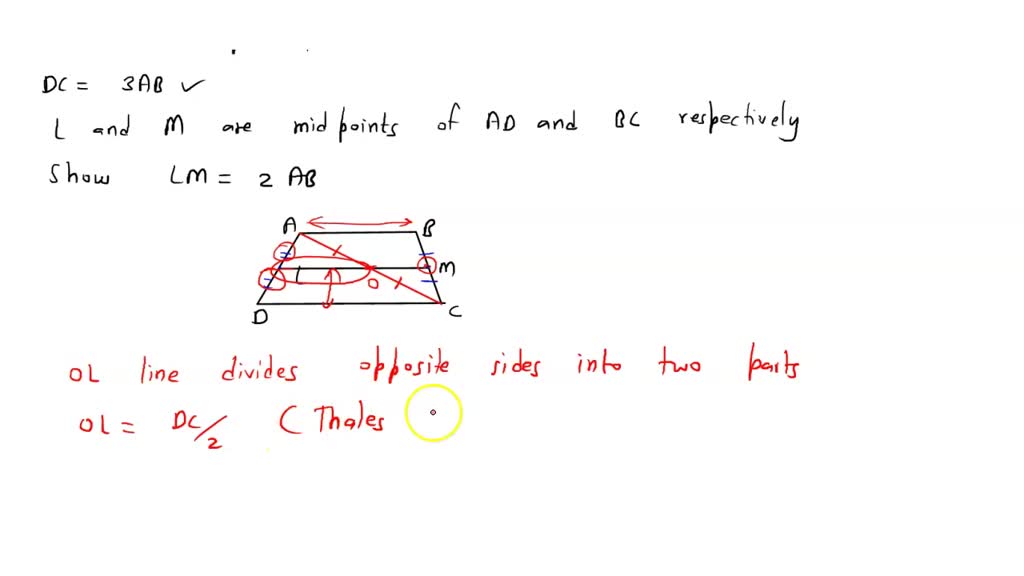 DC = 3AB ✓
L and M are mid points of AD and BC respectively
Show LM = 2 AB
A B
L M
O
D C
OL line divides opposite sides into two parts
OL = DC/2 ( Thales